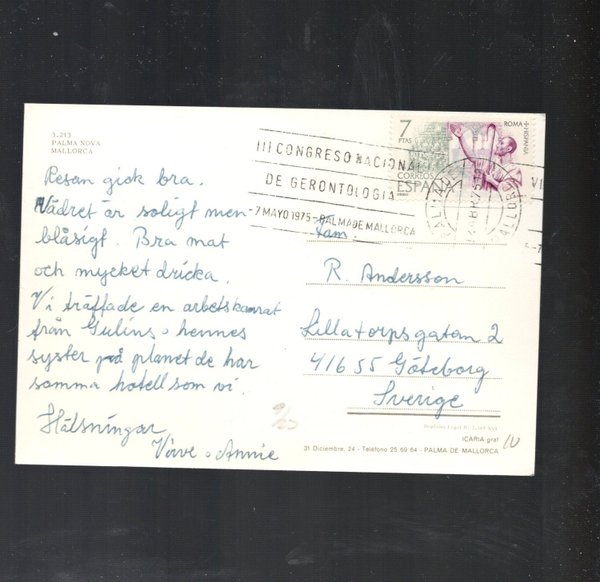 3.213
PALMA NOVA
MALLORCA
Resan gick bra.
Vädret är soligt men
blåsigt. Bra mat
och mycket dricka.
Vi träffade en arbetskamrat
från Gulins o hennes
syster på planet de har
samma hotell som vi.
Hälsningar
Vivve o Annie
7
PTAS
ROMA + HISPANIA
CORREOS
ESPAÑA
III CONGRESO NACIONAL
DE GERONTOLOGIA
-7 MAYO 1975-PALMA DE MALLORCA
Fam.
R. Andersson
Lillatorpsgatan 2
41655 Göteborg
Sverige
ICARIA graf
31 Diciembre, 24 - Teléfono 25 69 64 - PALMA DE MALLORCA